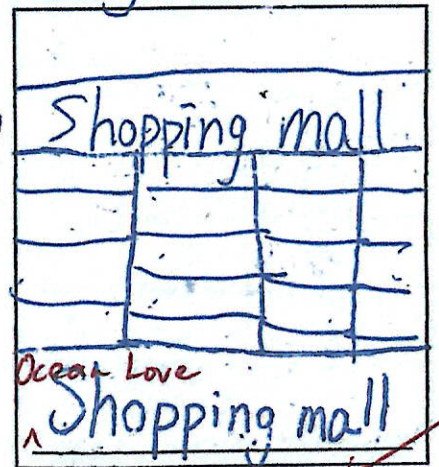 Shopping mall
Ocean Love
Shopping mall